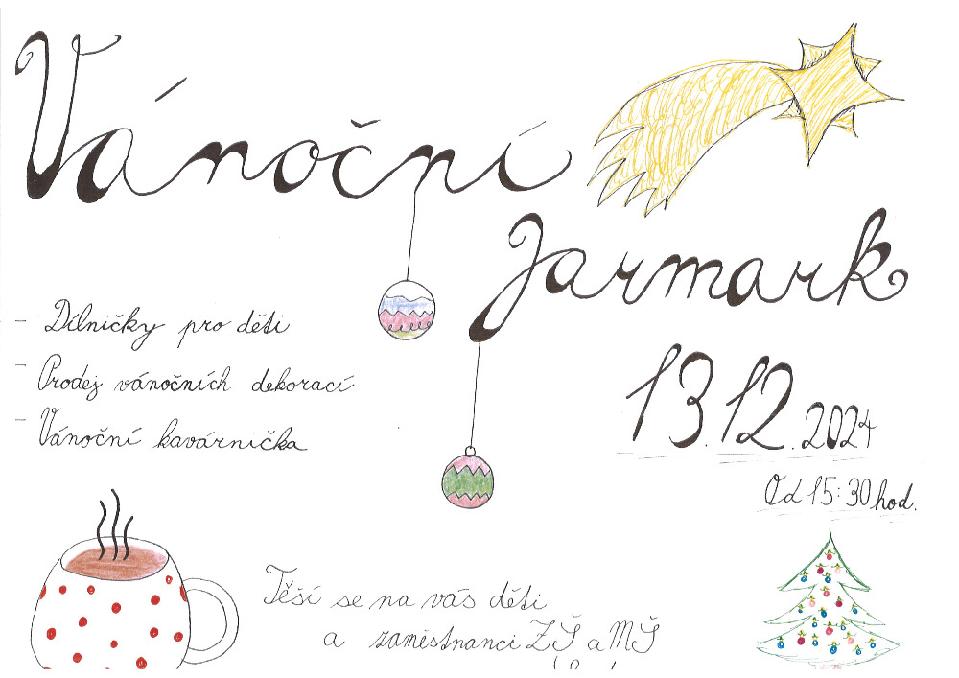 Vánoční
Jarmark
- Dílničky pro děti
- Prodej vánočních dekorací
- Vánoční kavárnička
13.12.2024
Od 15:30 hod.
Těší se na vás děti
a zaměstnanci ZŠ a MŠ